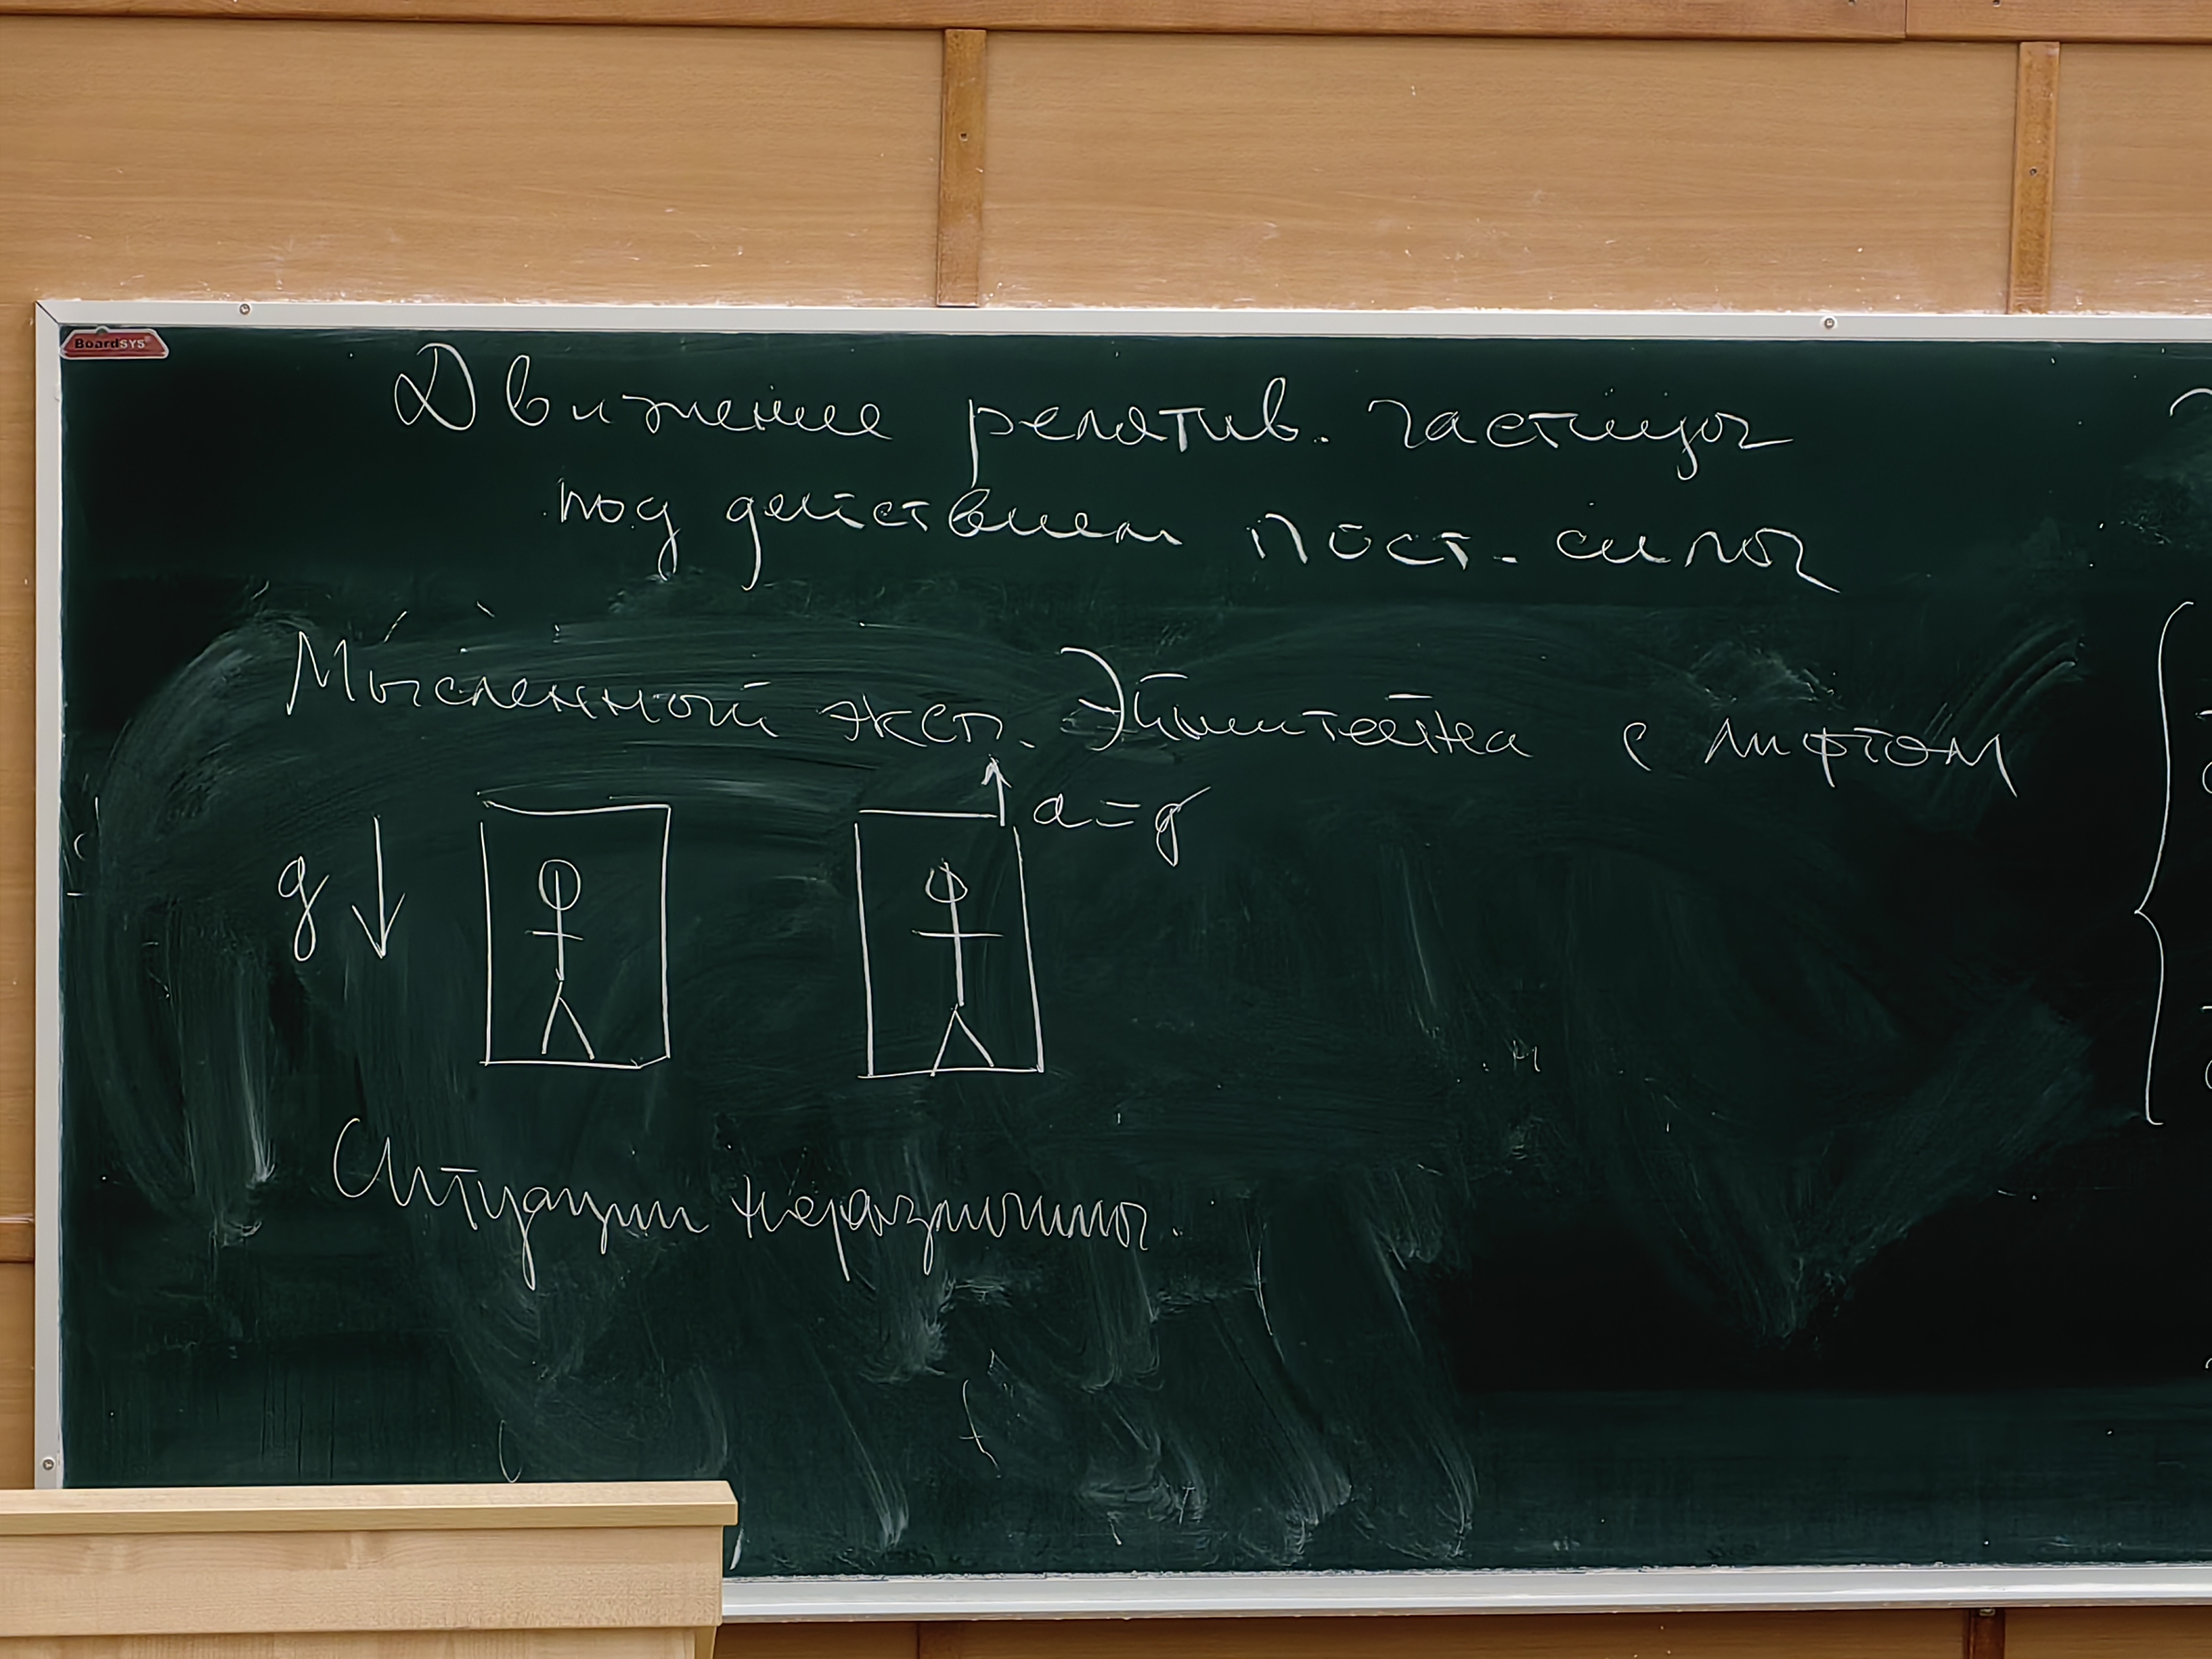 BoardSYS
Движение релятив. частицы
под действием пост. силы
Мысленный эксп. Эйнштейна с лифтом
a = g
g
Ситуации неразличимы.